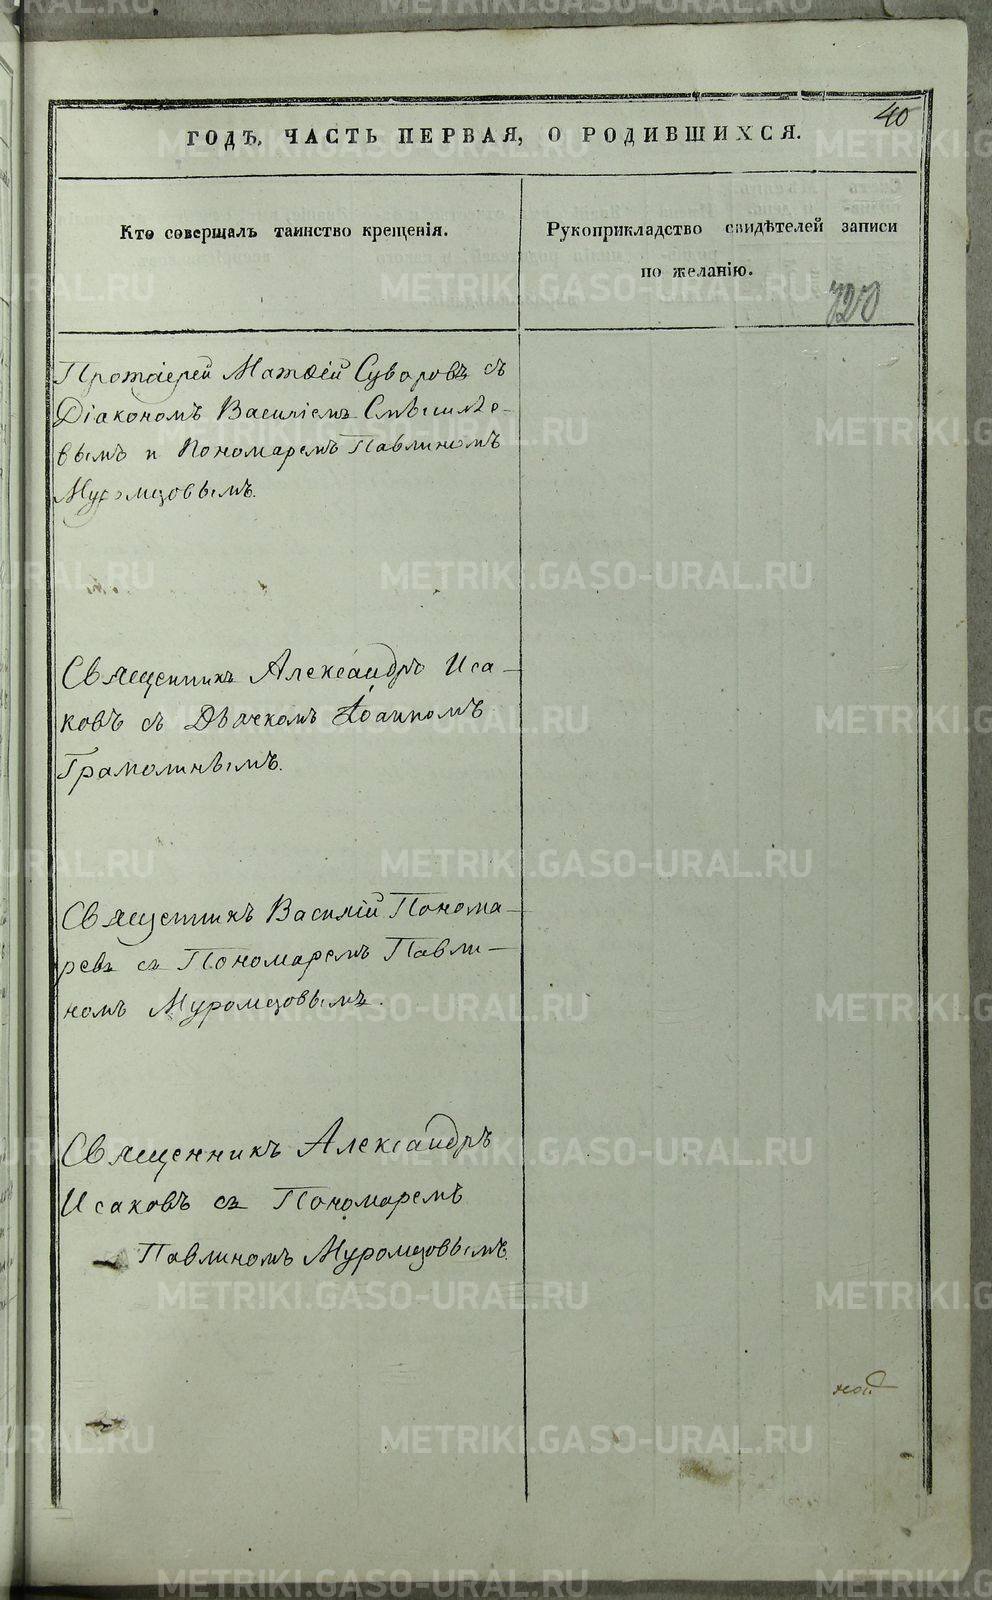 40
ГОДЪ, ЧАСТЬ ПЕРВАЯ, О РОДИВШИХСЯ.
Кто совершалъ таинство крещенія.
Рукоприкладство свидѣтелей записи
по желанію.
720
Протоіерей Матѳей Суворовъ съ
Діакономъ Василіемъ
вымъ и Пономаремъ Павлиномъ
Муромцовымъ.
Священникъ Александръ Иса-
ковъ съ Дьячкомъ Іоанномъ
Грамолинымъ.
Священникъ Василій Понома-
ревъ съ Пономаремъ Павли-
номъ Муромцовымъ.
Священникъ Александръ
Исаковъ съ Пономаремъ
Павлиномъ Муромцовымъ.
ной
METRIKI.GASO-URAL.RU